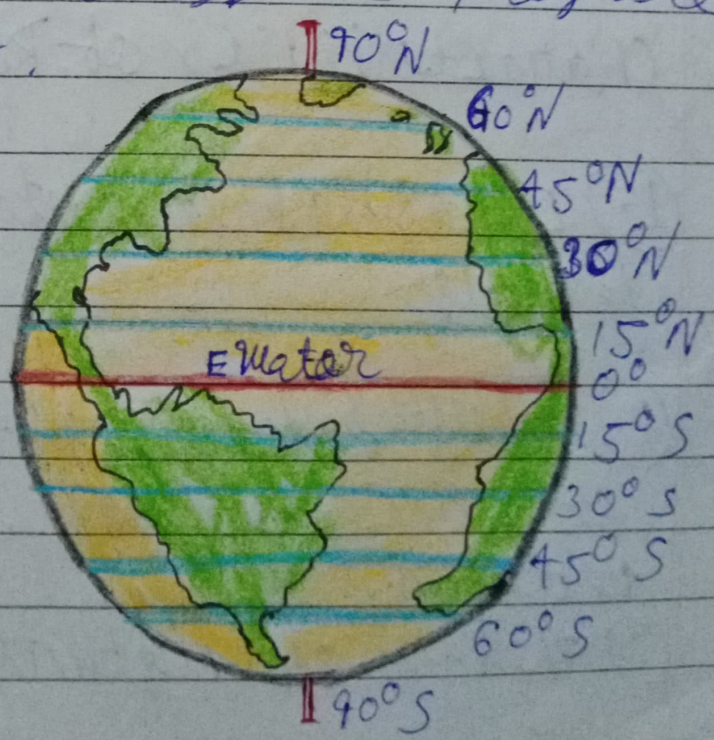 90°N
60°N
45°N
30°N
15°N
Equator
0°
15°S
30°S
45°S
60°S
90°S